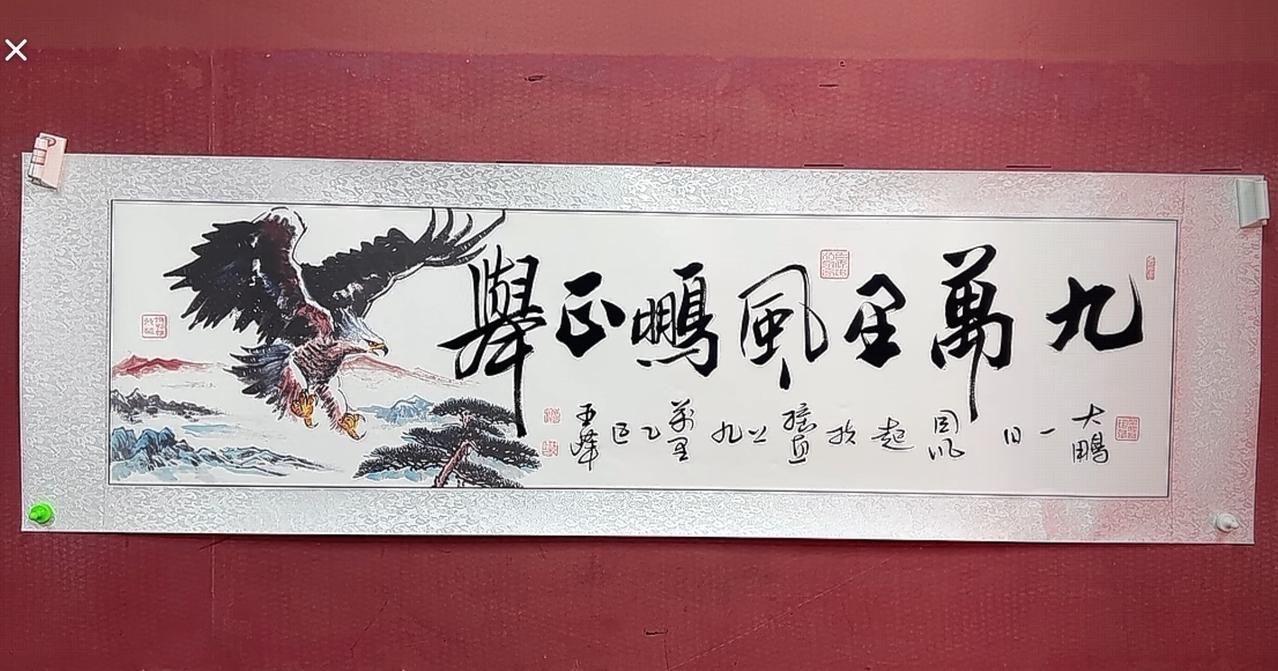 九萬里風鵬正舉
大鵬一日同風起扶搖直上九萬里乙巳玉峰